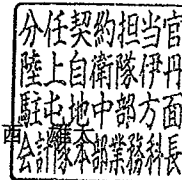 分任契約担当官
陸上自衛隊伊丹
駐屯地中部方面
会計隊本部業務科長
西